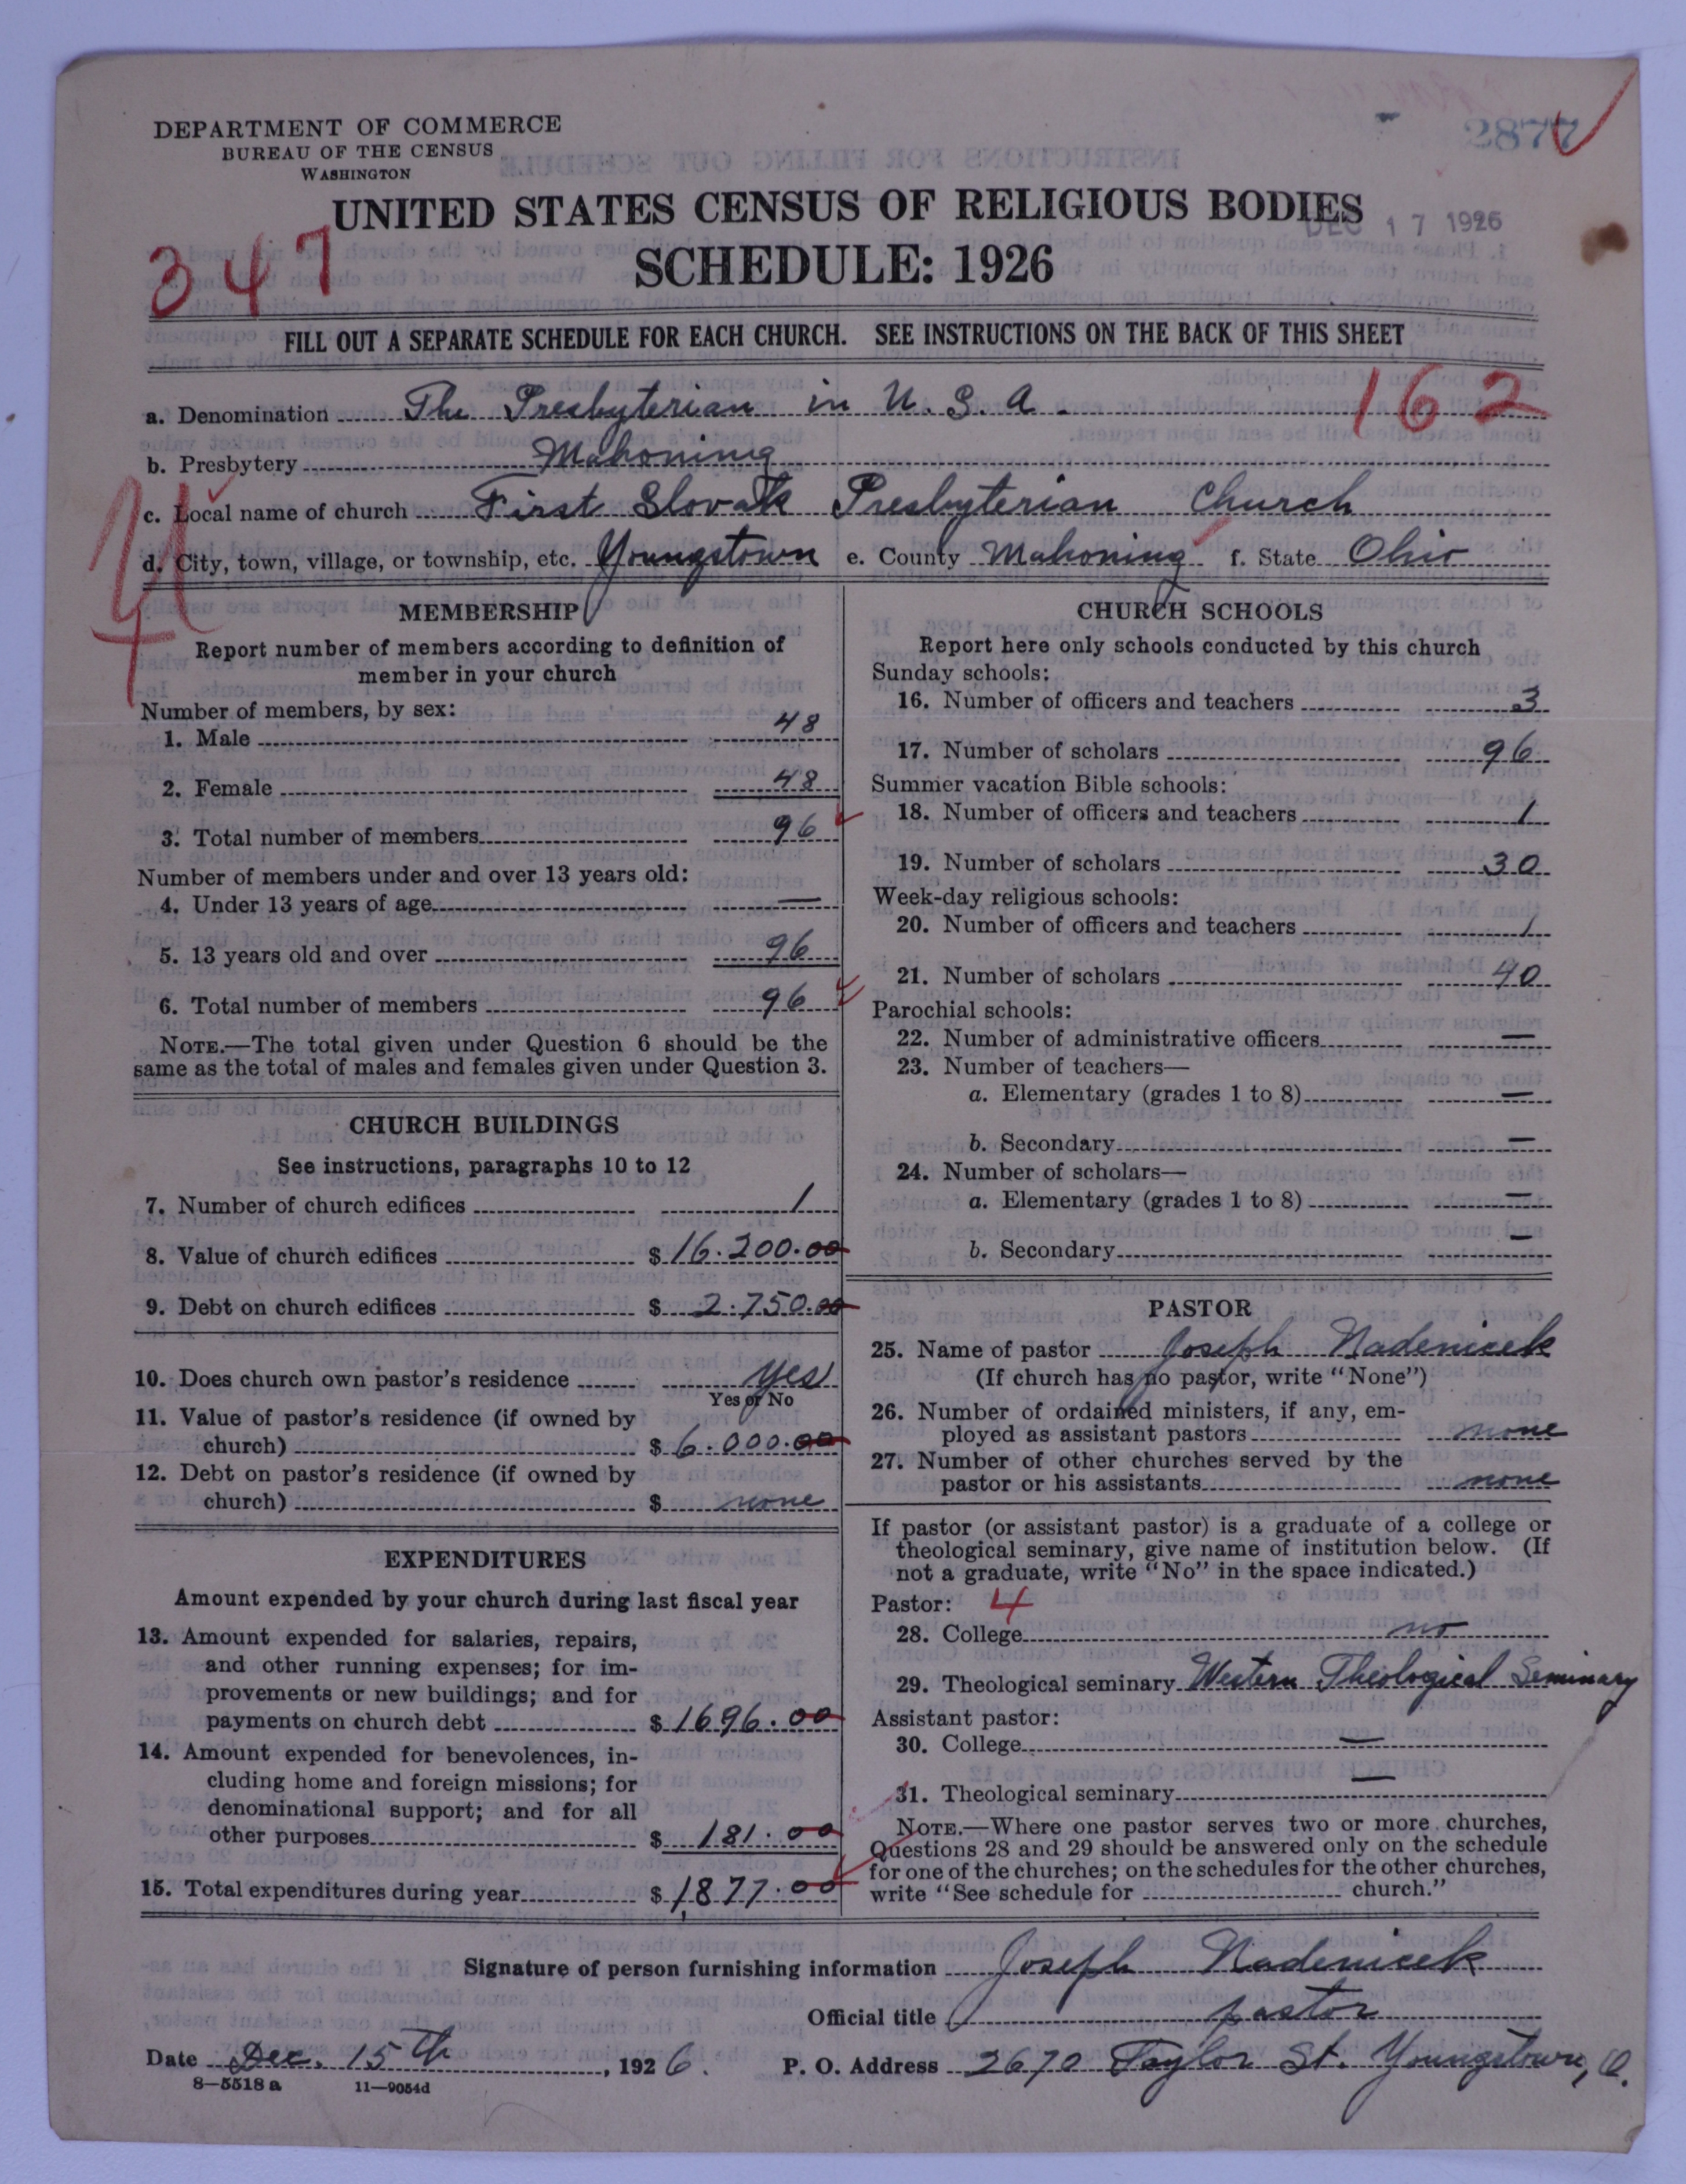 DEPARTMENT OF COMMERCE
BUREAU OF THE CENSUS
WASHINGTON
2877
UNITED STATES CENSUS OF RELIGIOUS BODIES
DEC 17 1926
SCHEDULE: 1926
347
FILL OUT A SEPARATE SCHEDULE FOR EACH CHURCH. SEE INSTRUCTIONS ON THE BACK OF THIS SHEET
a. Denomination The Presbyterian in U.S.A. 162
b. Presbytery Mahoning
c. Local name of church First Slovak Presbyterian Church
d. City, town, village, or township, etc. Youngstown e. County Mahoning f. State Ohio
MEMBERSHIP
Report number of members according to definition of
member in your church
Number of members, by sex:
1. Male 48
2. Female 48
3. Total number of members 96
Number of members under and over 13 years old:
4. Under 13 years of age —
5. 13 years old and over 96
6. Total number of members 96
NOTE.—The total given under Question 6 should be the
same as the total of males and females given under Question 3.
CHURCH BUILDINGS
See instructions, paragraphs 10 to 12
7. Number of church edifices 1
8. Value of church edifices $16.200.00
9. Debt on church edifices $2.750.00
10. Does church own pastor's residence yes
Yes or No
11. Value of pastor's residence (if owned by
church) $6.000.00
12. Debt on pastor's residence (if owned by
church) $ none
EXPENDITURES
Amount expended by your church during last fiscal year
13. Amount expended for salaries, repairs,
and other running expenses; for im-
provements or new buildings; and for
payments on church debt $1696.00
14. Amount expended for benevolences, in-
cluding home and foreign missions; for
denominational support; and for all
other purposes $181.00
15. Total expenditures during year $1,877.00
CHURCH SCHOOLS
Report here only schools conducted by this church
Sunday schools:
16. Number of officers and teachers 3
17. Number of scholars 96
Summer vacation Bible schools:
18. Number of officers and teachers 1
19. Number of scholars 30
Week-day religious schools:
20. Number of officers and teachers 1
21. Number of scholars 40
Parochial schools:
22. Number of administrative officers —
23. Number of teachers—
a. Elementary (grades 1 to 8) —
b. Secondary —
24. Number of scholars—
a. Elementary (grades 1 to 8) —
b. Secondary —
PASTOR
25. Name of pastor Joseph Nadenicek
(If church has no pastor, write "None")
26. Number of ordained ministers, if any, em-
ployed as assistant pastors none
27. Number of other churches served by the
pastor or his assistants none
If pastor (or assistant pastor) is a graduate of a college or
theological seminary, give name of institution below. (If
not a graduate, write "No" in the space indicated.)
Pastor: 4
28. College no
29. Theological seminary Western Theological Seminary
Assistant pastor:
30. College —
31. Theological seminary —
NOTE.—Where one pastor serves two or more churches,
Questions 28 and 29 should be answered only on the schedule
for one of the churches; on the schedules for the other churches,
write "See schedule for church."
Signature of person furnishing information Joseph Nadenicek
Official title pastor
Date Dec. 15th, 1926. P. O. Address 2670 Taylor St. Youngstown, O.
8—5518 a 11—9054d